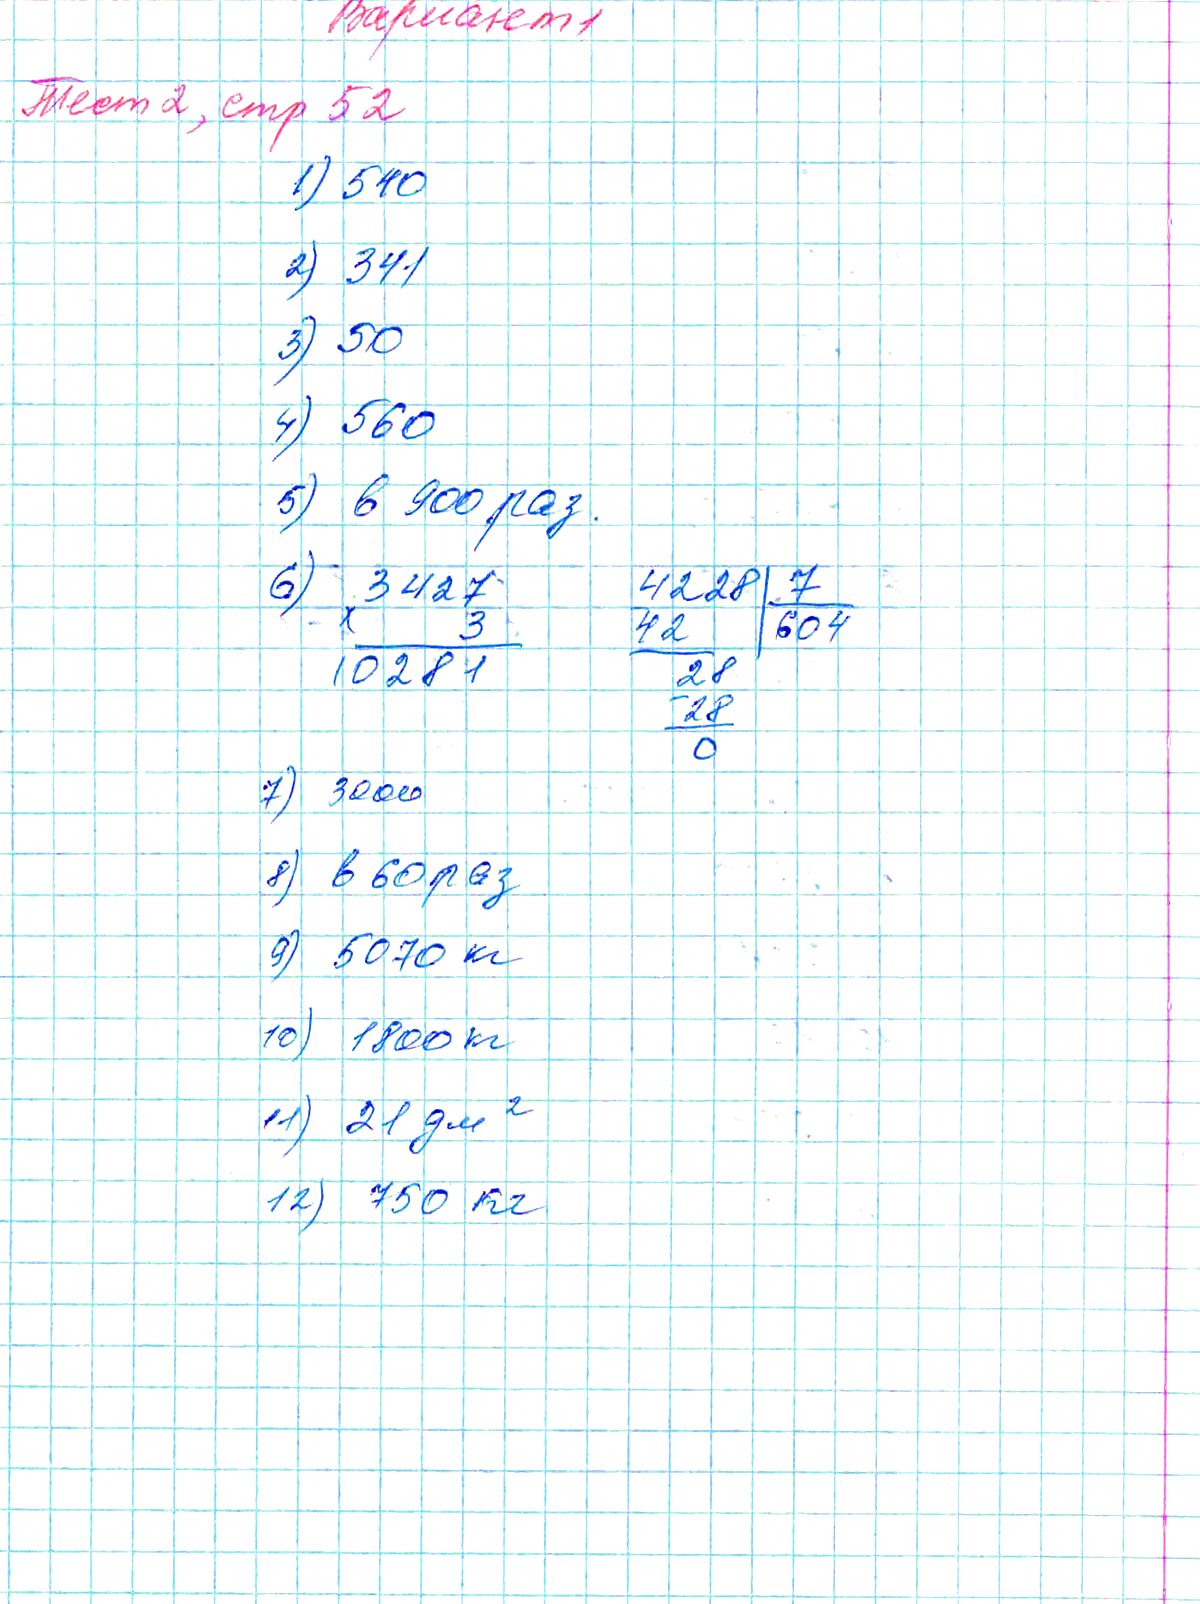 Вариант 1
Тест 2, стр 52
1) 540
2) 341
3) 50
4) 560
5) в 900 раз.
6) 3427 4228 7
x 3 42 604
10281 28
- 28
0
7) 3000
8) в 60 раз
9) 5070 кг
10) 1800 кг
11) 21 дм²
12) 750 кг